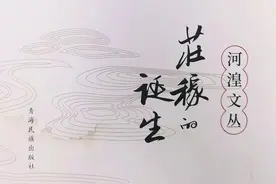 河湟文丛
莊稼的
诞生
青海民族出版社